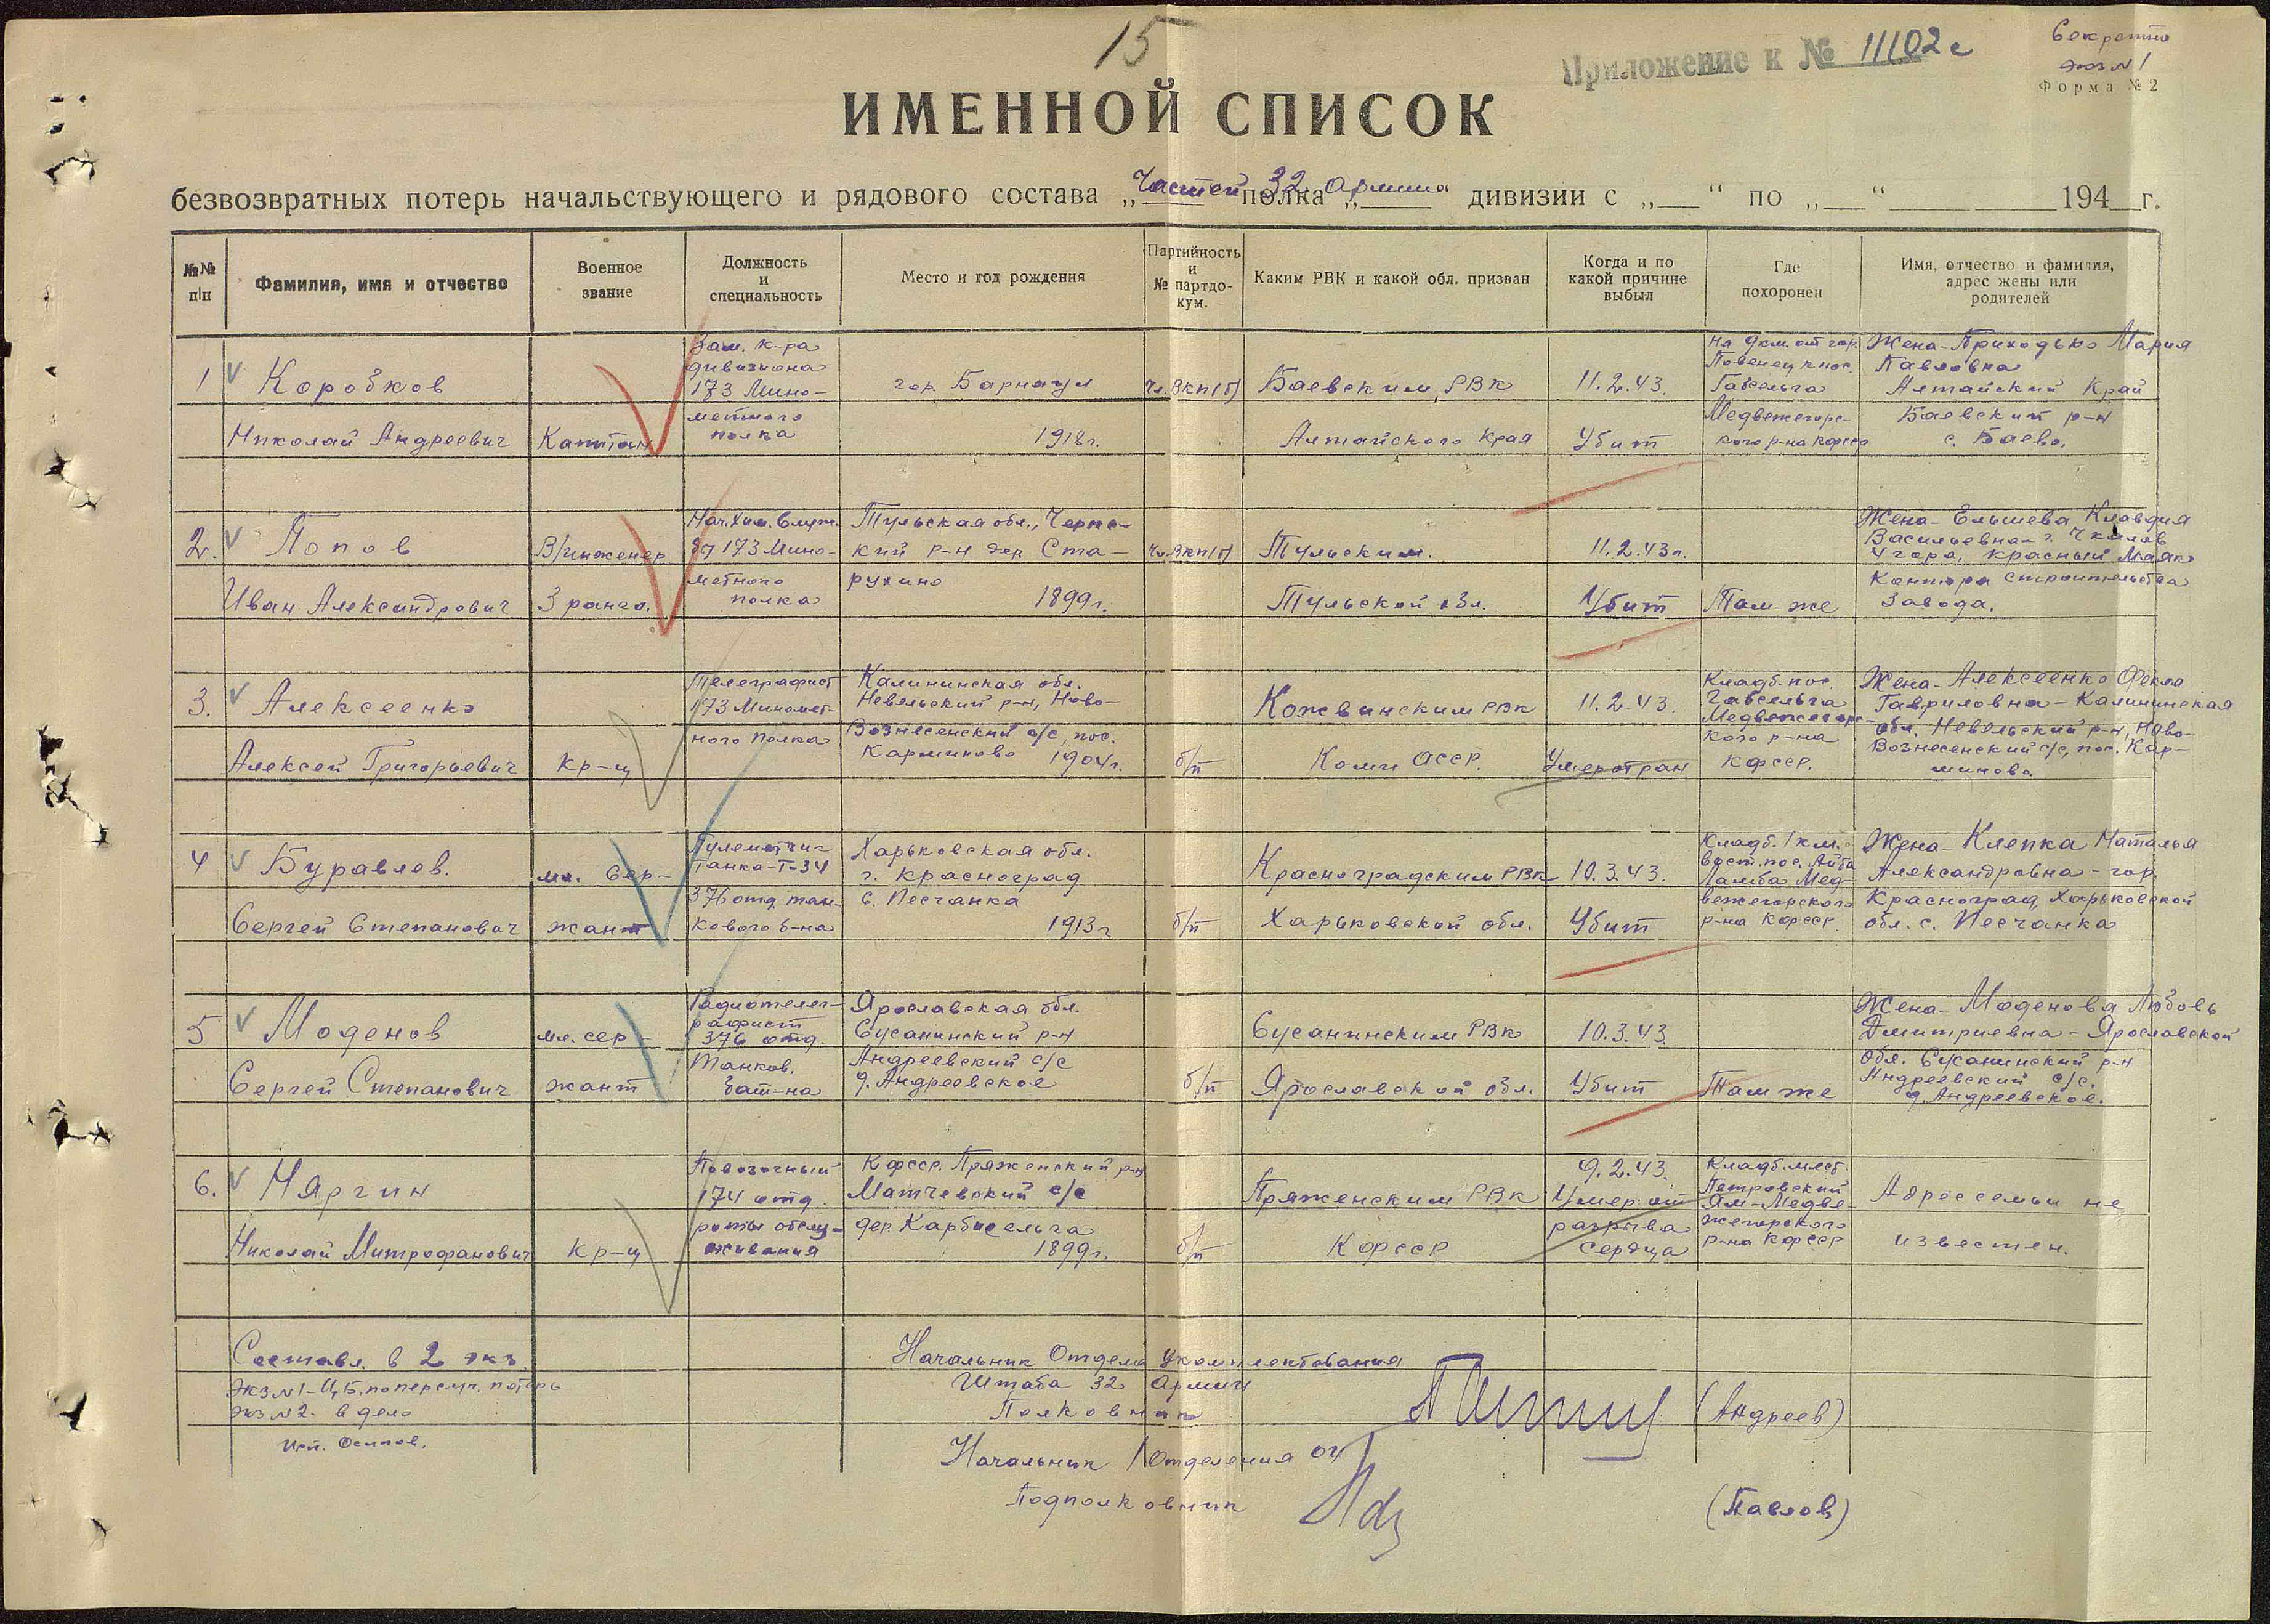 15
Приложение к № 11102с
Секретно
экз № 1
Форма № 2
ИМЕННОЙ СПИСОК
безвозвратных потерь начальствующего и рядового состава „Частей полка 32 „Армии дивизии с „ “ по „ “ 194 г.
№№ п/п
Фамилия, имя и отчество
Военное звание
Должность и специальность
Место и год рождения
Партийность и № партдо-кум.
Каким РВК и какой обл. призван
Когда и по какой причине выбыл
Где похоронен
Имя, отчество и фамилия, адрес жены или родителей
1
Коробков
Николай Андреевич
Капитан
Зам. к-ра
дивизиона
173 Мино-
метного
полка
гор. Барнаул
1918г.
Чл.ВКП(б)
Баевским, РВК
Алтайского Края
11.2.43.
Убит
На 9км. от гор.
Повенец к пос.
Габсельга
Медвежегорс-
кого р-на кфсср
Жена-Приходько Мария
Павловна
Алтайский Край
Баевский р-н
с. Баево.
2.
Попов
Иван Александрович
В/инженер
3 ранга.
Нач.хим.служ-
бы 173 Мино-
метного
полка
Тульская обл., Чернс-
кий р-н дер Ста-
рухино
1899г.
Чл.ВКП(б)
Тульским.
Тульской обл.
11.2.43г.
Убит
Там-же
Жена-Елышева Клавдия
Васильевна-г. Чкалов
4 гора, красный Маяк
Контора строительства
Завода.
3.
Алексеенко
Алексей Григорьевич
кр-ц
Телеграфист
173 Миномет-
ного полка
Калининская обл.
Невельский р-н, Ново-
Вознесенский с/с, пос.
Карминово 1904г.
б/п
Кожвинским РВК
Коми АССР.
11.2.43.
Умер от ран
Кладб. пос.
Габсельга
Медвежегорс-
кого р-на
кфсср.
Жена-Алексеенко Фёкла
Гавриловна-Калининская
обл. Невельский р-н, Ново-
Вознесенский с/с, пос. Кар-
миново.
4
Буравлев.
Сергей Степанович
мл. Сер-
жант
Пулеметчик
Танка-Т-34
376 отд. тан-
кового б-на
Харьковская обл.
г. Красноград
с. Песчанка
1913г
б/п
Красноградским РВК
Харьковской обл.
10.3.43.
Убит
Кладб. 1 км.
вост. пос. Айта
Ламба Мед-
вежегорского
р-на кфсср.
Жена-Клепка Наталья
Александровна-гор.
Красноград, Харьковской
обл. с. Песчанка
5
Моденов
Сергей Степанович
мл. сер-
жант
Радиотелег-
рафист
376 отд.
Танков.
бат-на
Ярославская обл.
Сусанинский р-н
Андреевский с/с
д. Андреевское
б/п
Сусанинским РВК
Ярославской обл.
10.3.43
Убит
Там же
Жена-Моденова Любовь
Дмитриевна-Ярославской
обл. Сусанинский р-н
Андреевский с/с.
д. Андреевское.
6.
Няргин
Николай Митрофанович
кр-ц
Повозочный
174 отд.
роты обслу-
живания
Кфсср. Пряженский р-н
Матчевский с/с
дер. Карбисельга
1899г.
б/п
Пряженским РВК
Кфсср
9.2.43.
Умер от
разрыва
сердца
Кладб. мест.
Петровский
Ям-Медве-
жегорского
р-на кфсср
Адрес семьи не
известен.
Составл. в 2 экз.
Экз №1-ЦБ. по персуч. потерь
Экз №2. в дело
Исп. Осипов.
Начальник Отдела укомплектования
Штаба 32 Армии
Полковник
(Андреев)
Начальник 1 отделения ОУ
Подполковник
(Павлов)